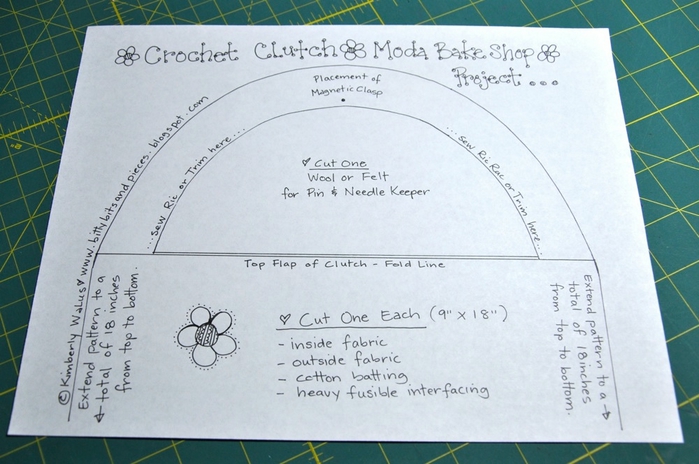 Crochet Clutch Moda Bake Shop
Project...
Placement of
Magnetic Clasp
© Kimberly Walus ♥ www.bittybitsandpieces.blogspot.com
...sew Ric or Trim here...
...sew Ric Rac or Trim here...
♥ Cut One
Wool or Felt
for Pin & Needle Keeper
Top Flap of Clutch - Fold Line
Extend pattern to a
total of 18 inches
from top to bottom.
♥ Cut One Each (9" x 18")
- inside fabric
- outside fabric
- cotton batting
- heavy fusible interfacing
Extend pattern to a
total of 18 inches
from top to bottom.